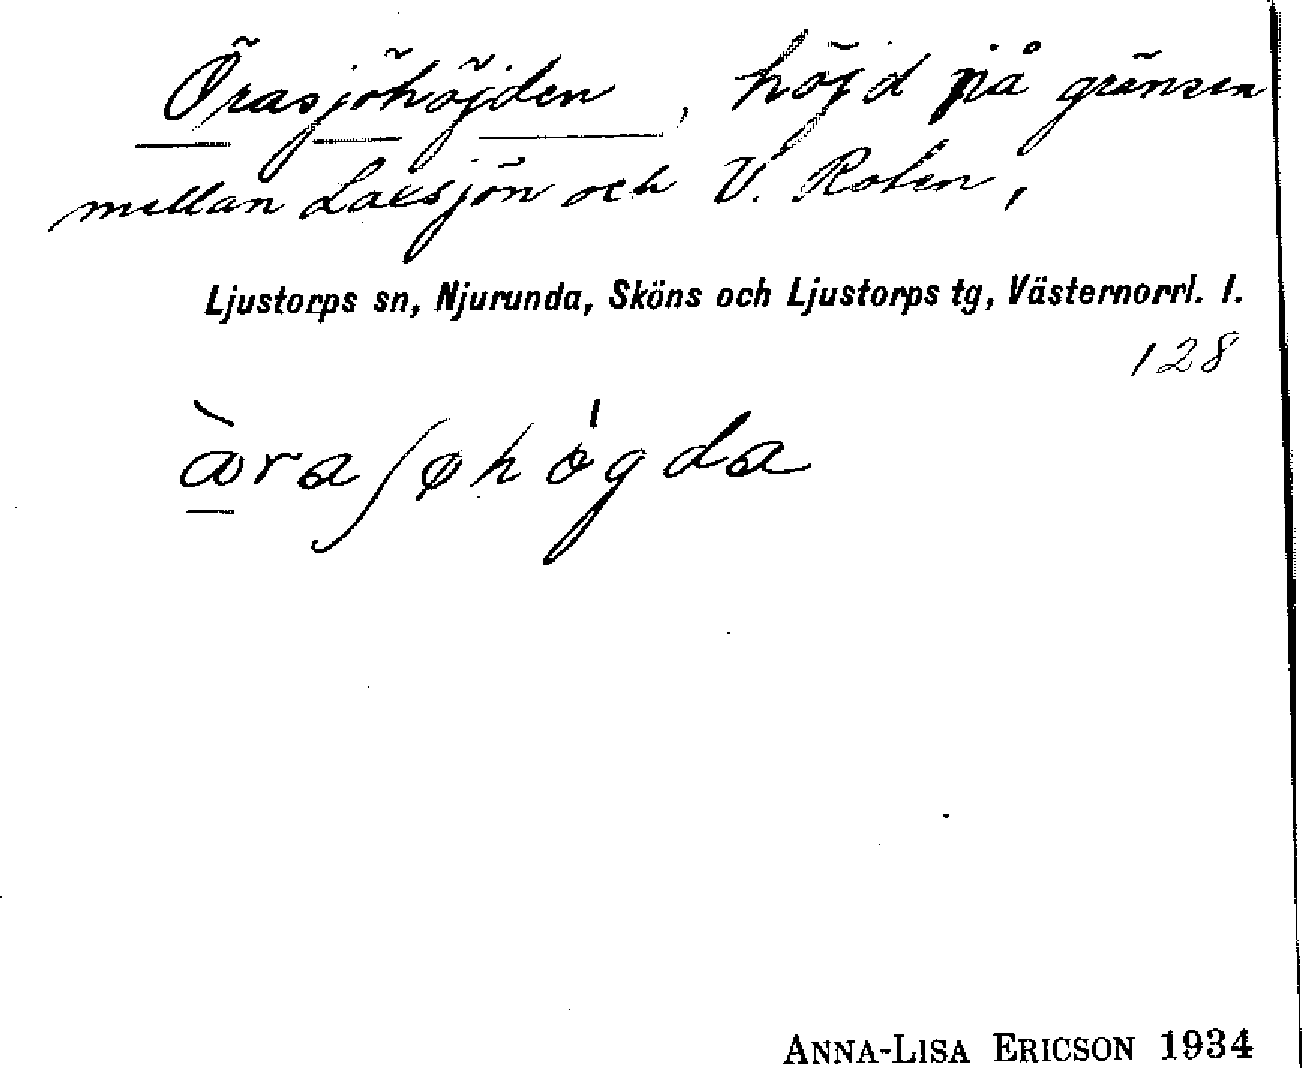 Örasjöhöjden, höjd på gränsen
mellan Laxsjön och V. Roten,
Ljustorps sn, Njurunda, Sköns och Ljustorps tg, Västernorrl. l.
128
æ̀raʃøhǿgda
ANNA-LISA ERICSON 1934